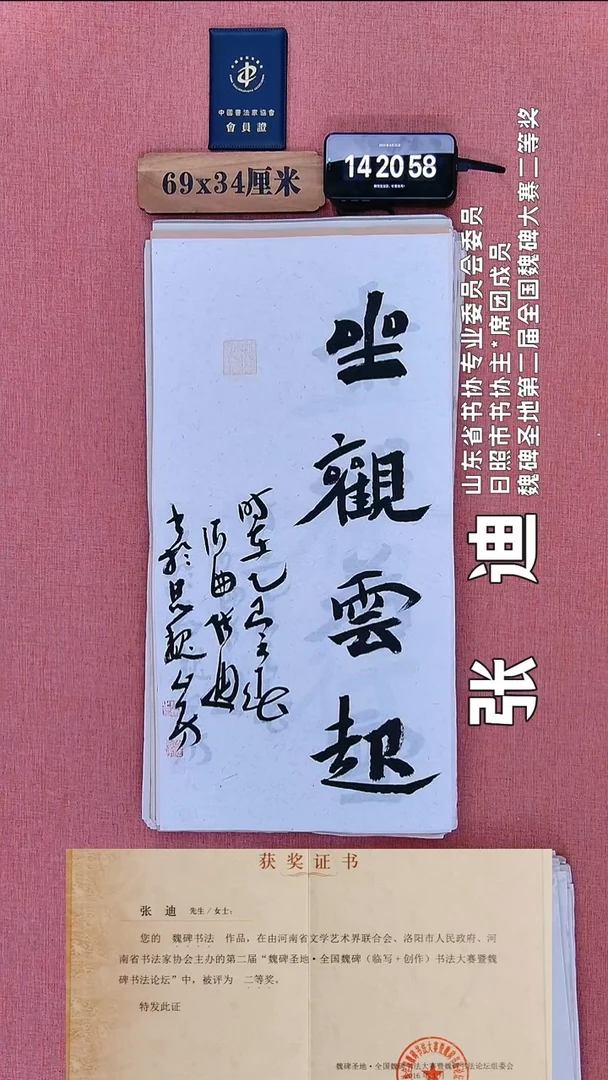 中國書法家協會
會員證
69x34厘米
14 20 58
山东省书协专业委员会委员
日照市书协主*席团成员
魏碑圣地第二届全国魏碑大赛二等奖
张 迪
坐觀雲起
时在乙巳之春
河曲张迪
书于思魏山房
获奖证书
张 迪 先生/女士:
您的 魏碑书法 作品,在由河南省文学艺术界联合会、洛阳市人民政府、河
南省书法家协会主办的第二届“魏碑圣地·全国魏碑(临写+创作)书法大赛暨魏
碑书法论坛”中,被评为 二等奖。
特发此证
魏碑圣地·全国魏碑书法大赛暨魏碑书法论坛组委会